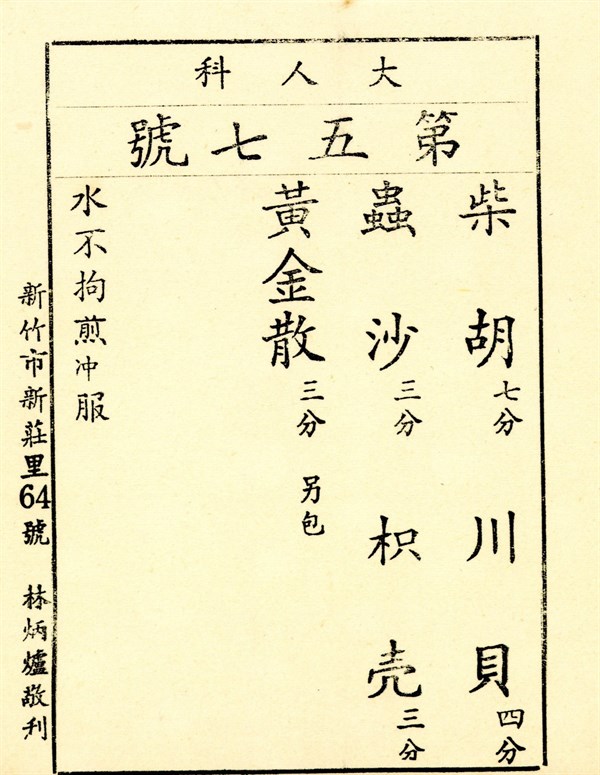 大人科
第五七號
柴胡七分 川貝四分
蟲沙三分 枳壳三分
黃金散三分 另包
水不拘煎冲服
新竹市新莊里64號 林炳爐敬刊